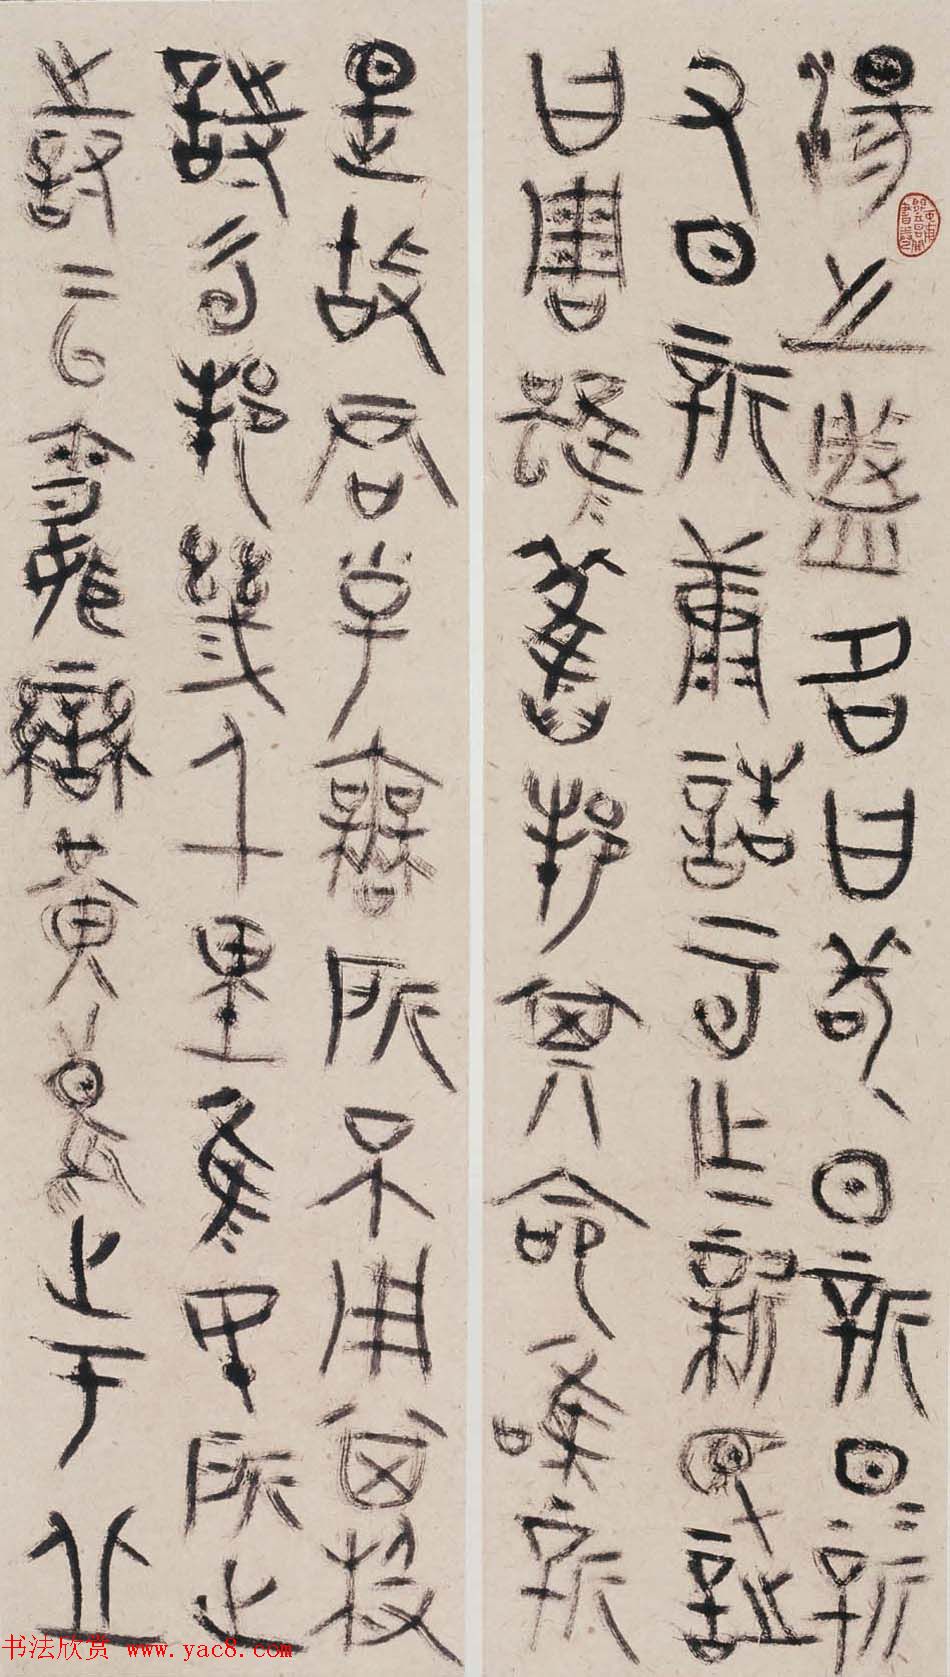 湯之盤名曰苟日新日=新
又日新康誥云乍新民詩
曰周雖舊邦其命唯新
是故君子所不用其極
詩云邦畿千里隹民所止
詩云緡蠻黃鳥止于丘
书法欣赏 www.yac8.com